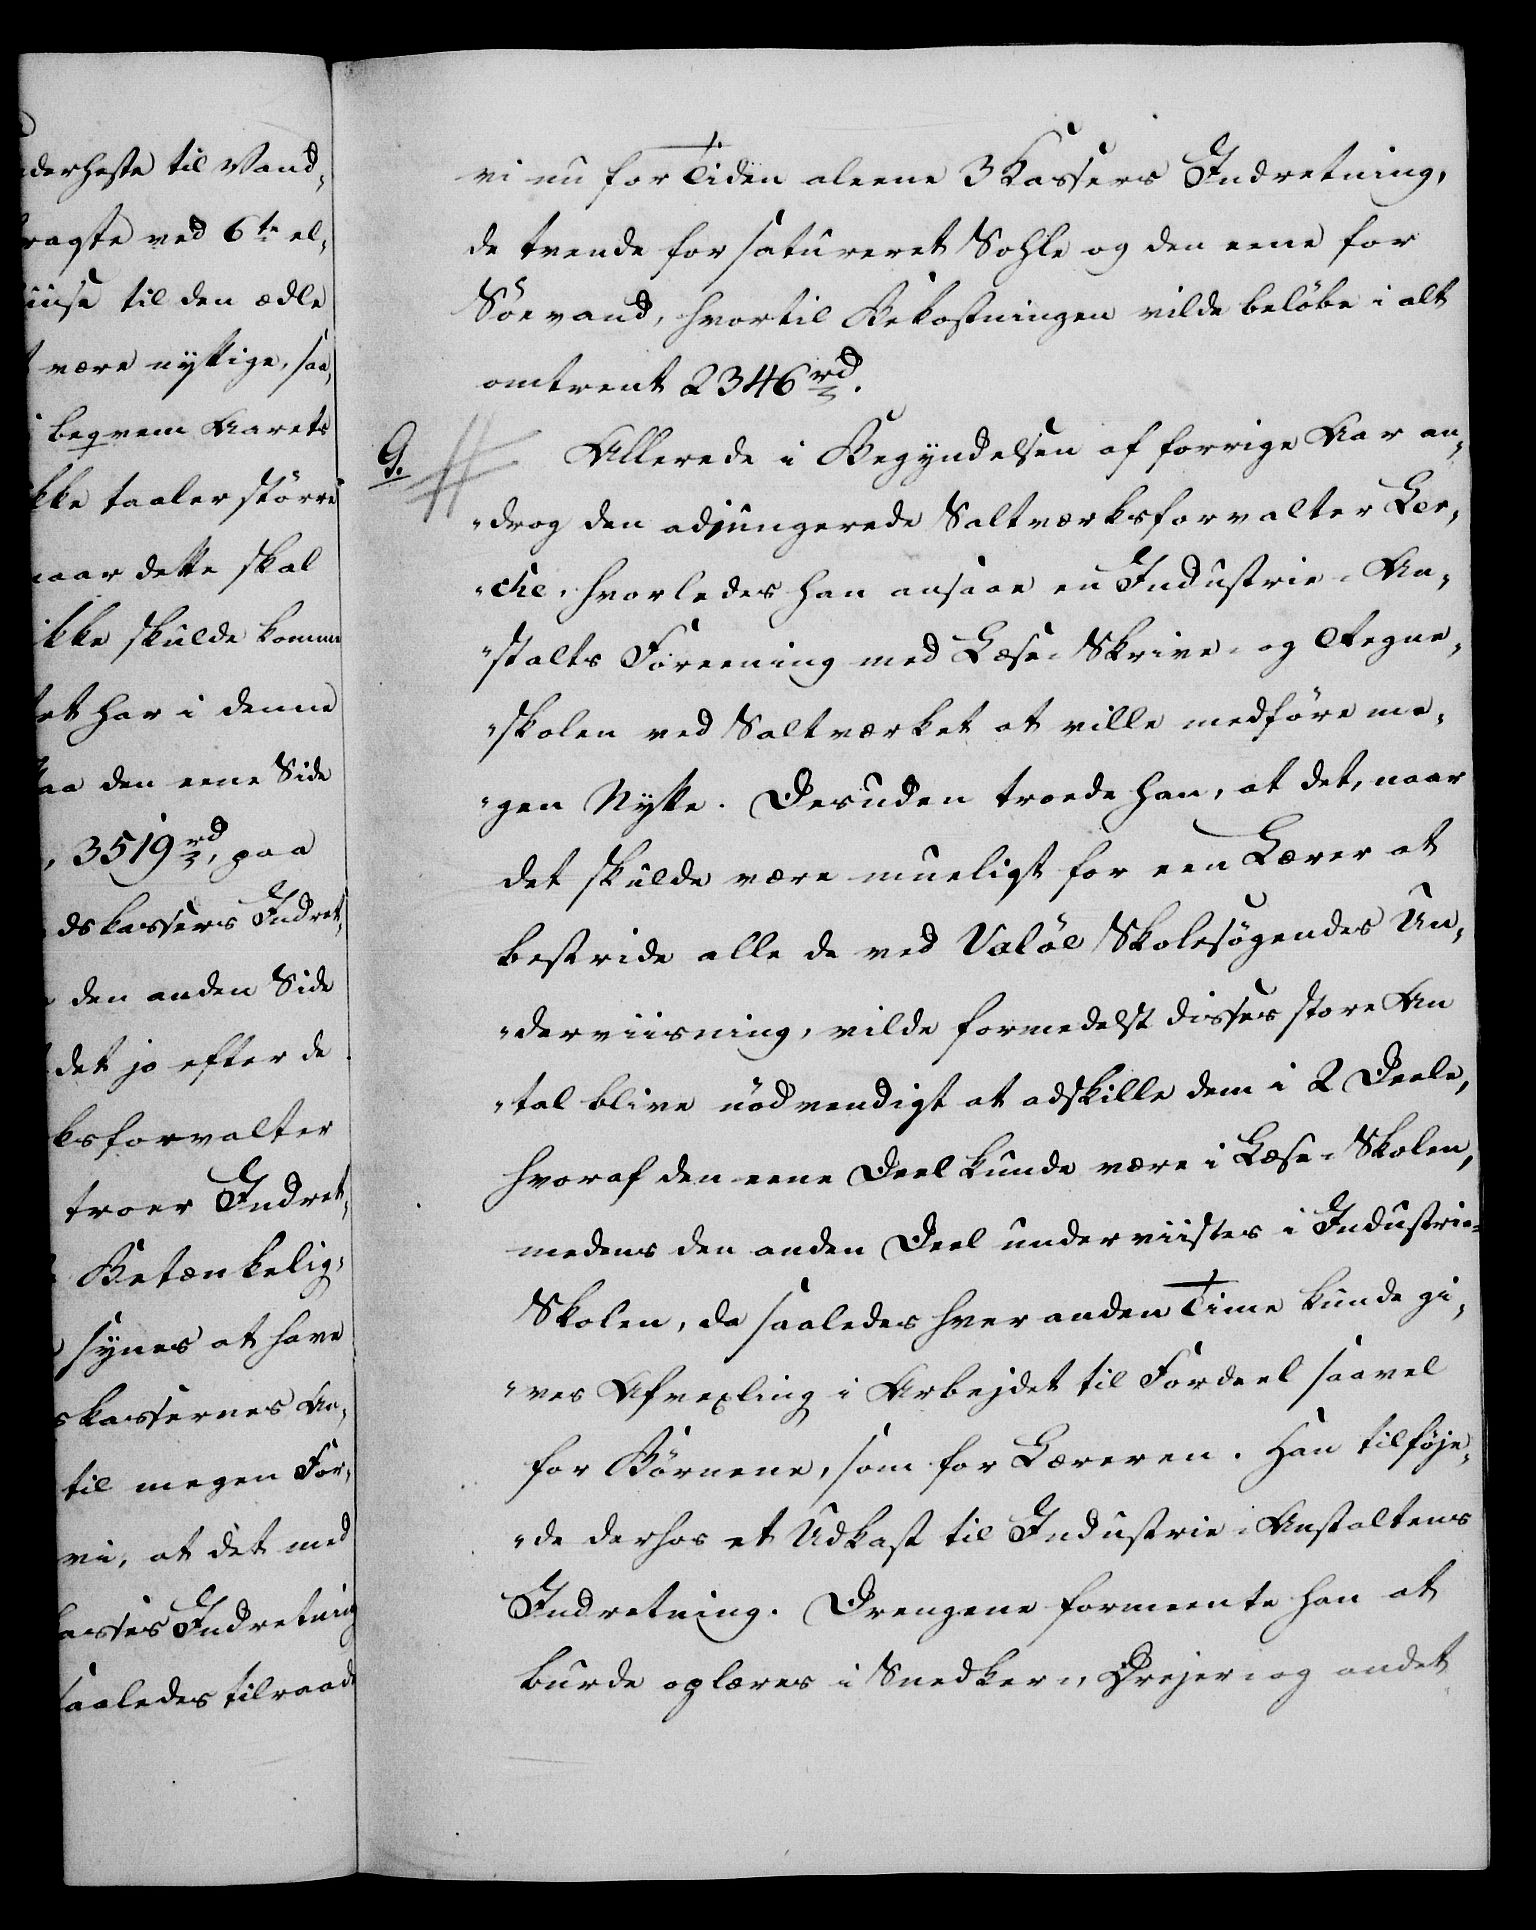 derhefte til Vand,
ragte ved 6te el,
iinse til den ædle
være nyttige, saa,
beqvem Aarets
kke taaler större
naar dette skal
ikke skulde komme
et har i denne
aa den eene Side
, 3519 rd, paa
dskassers Indret,
den anden Side
det jo efter de
ksforvalter
troer Indret,
Betænkelig,
synes at have
skassernes An,
til megen For,
vi, at det med
asses Indretning
saaledes tilraade
vi nu for Tiden aleene 3 Kassers Indretning,
de tvende for satureret Sohle og den eene for
Söevand, hvortil Bekostningen vilde beløbe i alt
omtrent 2346 rd.
9. Allerede i Begyndelsen af forrige Aar an,
"drog den adjungerede Saltværksforvalter Ler,
"che, hvorledes han ansaae en Industrie-An,
"stalts Foreening med Læse- Skrive- og Regne,
"skolen ved Saltværket at ville medføre me,
"gen Nytte. Desuden troede han, at det, naar
det skulde være mueligt for een Lærer at
bestride alle de ved Valøe Skolesøgendes Un,
"derviisning, vilde formedelst disses store An
"tal blive nödvendigt at adskille dem i 2 Deele,
hvoraf den eene Deel kunde være i Læse-Skolen,
medens den anden Deel underviistes i Industrie-
Skolen, da saaledes hver anden Time kunde gi,
"ves Afvexling i Arbejdet til Fordeel saavel
for Börnene, som for Læreren. Han tilføje,
"de derhos et Udkast til Industrie-Anstaltens
Indretning. Drengene formeente han at
burde oplæres i Snedker-, Drejer- og andet